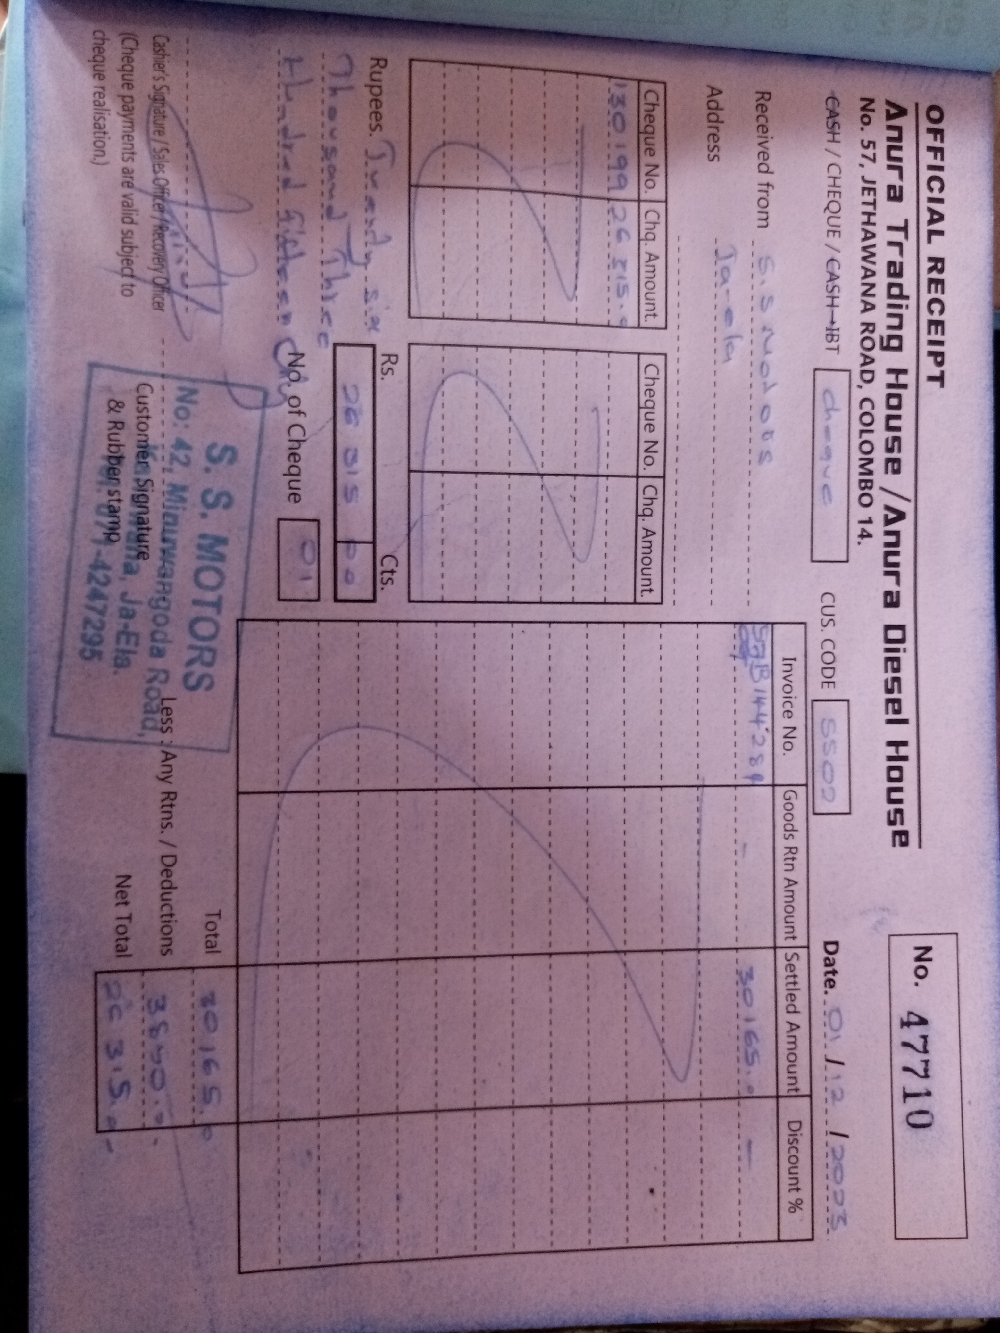 OFFICIAL RECEIPT
Anura Trading House / Anura Diesel House
No. 57, JETHAWANA ROAD, COLOMBO 14.
No. 47710
CASH / CHEQUE / CASH→IBT
cheque
CUS. CODE SS02
Date. 01 / 12 / 2023
Received from S.S Motors
Address Ja-ela
Cheque No. Chq. Amount.
130199 26315.
Cheque No. Chq. Amount.
Invoice No. Goods Rtn Amount Settled Amount Discount %
- 30165. -
Rupees. Twenty six
Thousand Three
Hundred fifteen
Rs. Cts.
26 315 00
No. of Cheque 01
Total 30165.
Less : Any Rtns. / Deductions 3850.
Net Total 26315.
Cashier's Signature / Sales Officer / Recovery Officer
(Cheque payments are valid subject to
cheque realisation.)
Customer Signature
& Rubber stamp
S. S. MOTORS
No: 42, Minuwangoda Road,
Ja-Ela.
071-4247295